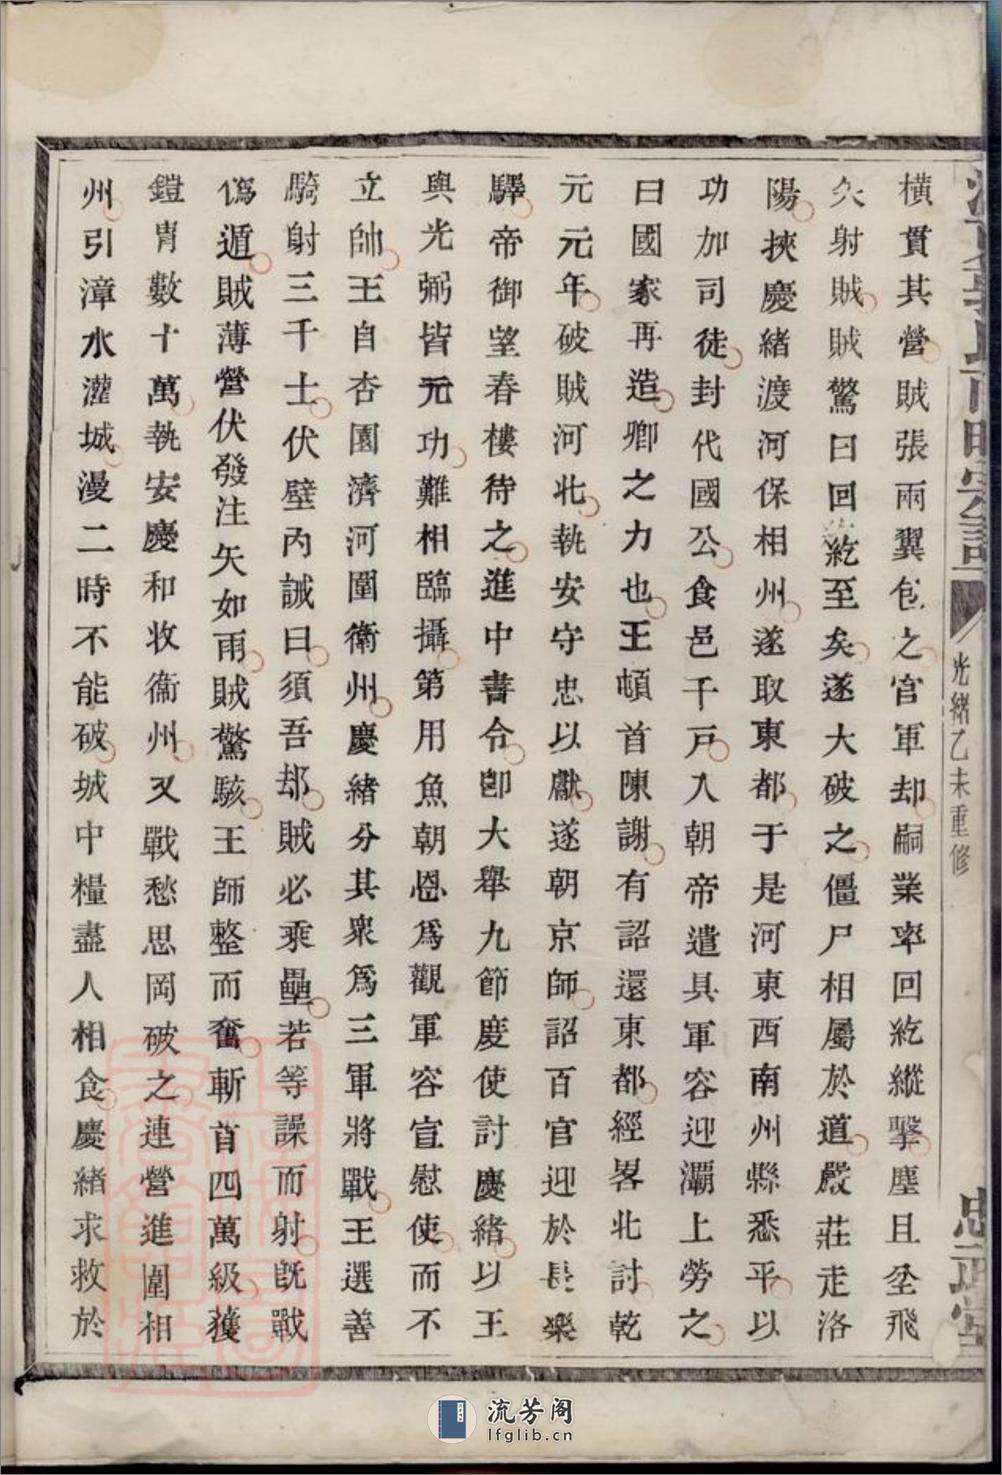 光緒乙未重修
忠武堂
橫貫其營賊張兩翼包之官軍却嗣業率回紇縱擊塵且坌飛
矢射賊賊驚曰回紇至矣遂大破之僵尸相屬於道嚴莊走洛
陽挾慶緒渡河保相州遂取東都于是河東西南州縣悉平以
功加司徒封代國公食邑千戸入朝帝遣具軍容迎灞上勞之
曰國家再造卿之力也王頓首陳謝有詔還東都經畧北討乾
元元年破賊河北執安守忠以獻遂朝京師詔百官迎於長樂
驛帝御望春樓待之進中書令卽大舉九節慶使討慶緒以王
與光弼皆元功難相臨攝第用魚朝恩爲觀軍容宣慰使而不
立帥王自杏園濟河圍衛州慶緒分其衆爲三軍將戰王選善
騎射三千士伏壁內誡曰須吾却賊必乘壘若等譟而射旣戰
僞遁賊薄營伏發注矢如雨賊驚駭王師整而奮斬首四萬級獲
鎧胄數十萬執安慶和收衞州又戰愁思岡破之連營進圍相
州引漳水灌城漫二時不能破城中糧盡人相食慶緒求救於
流芳阁
lfglib.cn